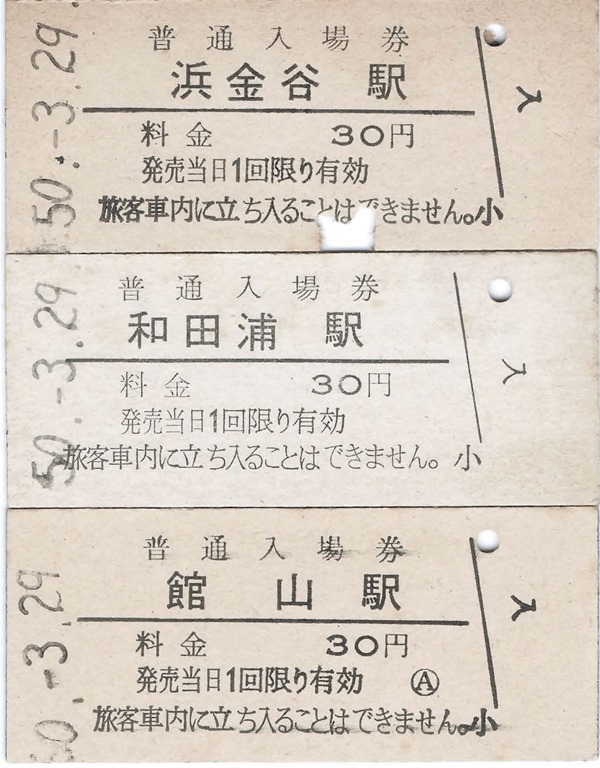 50.-3.29
普通入場券
浜金谷 駅
料金 30円
発売当日1回限り有効
旅客車内に立ち入ることはできません。小
入
50.-3.29
普通入場券
和田浦 駅
料金 30円
発売当日1回限り有効
旅客車内に立ち入ることはできません。小
入
50.-3.29
普通入場券
館 山 駅
料金 30円
発売当日1回限り有効 Ⓐ
旅客車内に立ち入ることはできません。小
入